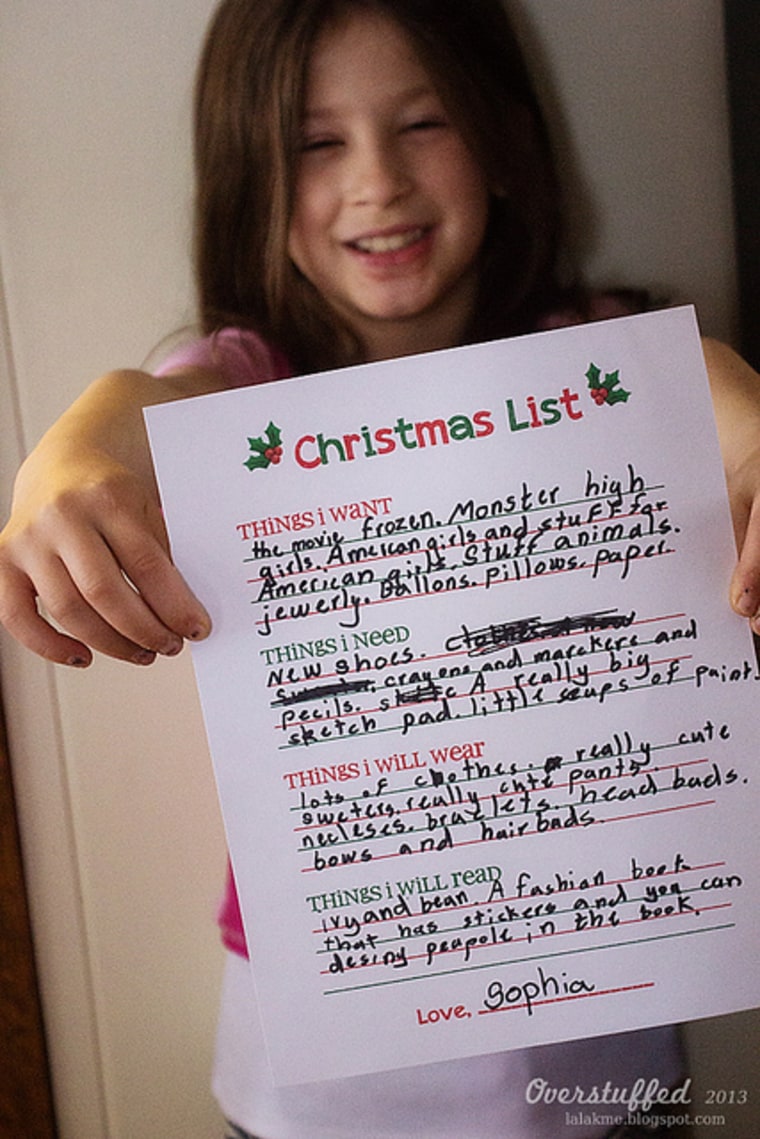 Christmas List
THiNGS i WaNT
the movie frozen. Monster high
girls. American girls and stuff for
American girls. Stuff animals.
jewerly. Ballons. Pillows. paper.
THiNGS i NeeD
New shoes.
crayons and marekers and
pecils. A really big
sketch pad. little cups of paint.
THiNGS i WiLL wear
lots of clothes. really cute
sweters. really cute pants.
necleses. braclets. head bads.
bows and hairbads.
THiNGS i WiLL read
ivy and bean. A fashion book
that has stickers and you can
desiny peapole in the book.
Love, Sophia
Overstuffed 2013
lalakme.blogspot.com